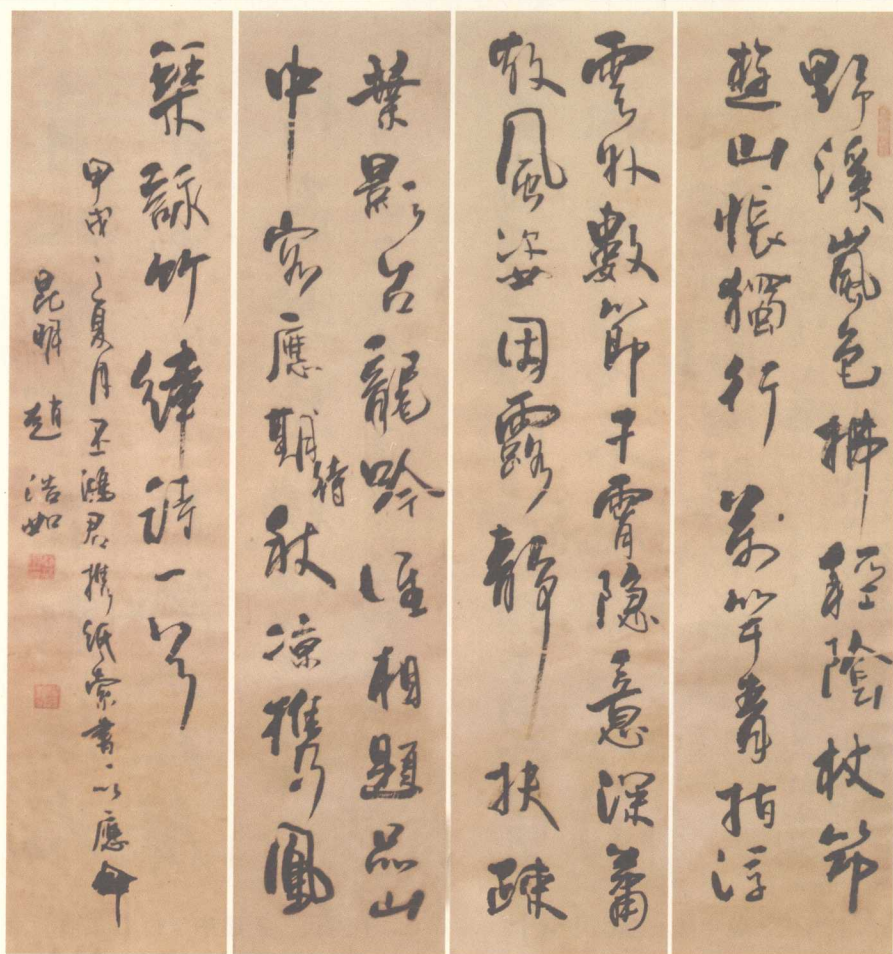 野溪嵐色拂輕陰杖節
遊山悵獨行萬竿青指浮
雲外數節干霄隱意深蕭
散風姿因露靜扶疎
葉影召龍吟誰相題品山
中客應期待秋涼攜鳳
琴詠竹律詩一首
甲戌之夏月丕鴻君攜紙索書以應命
昆明趙浩如